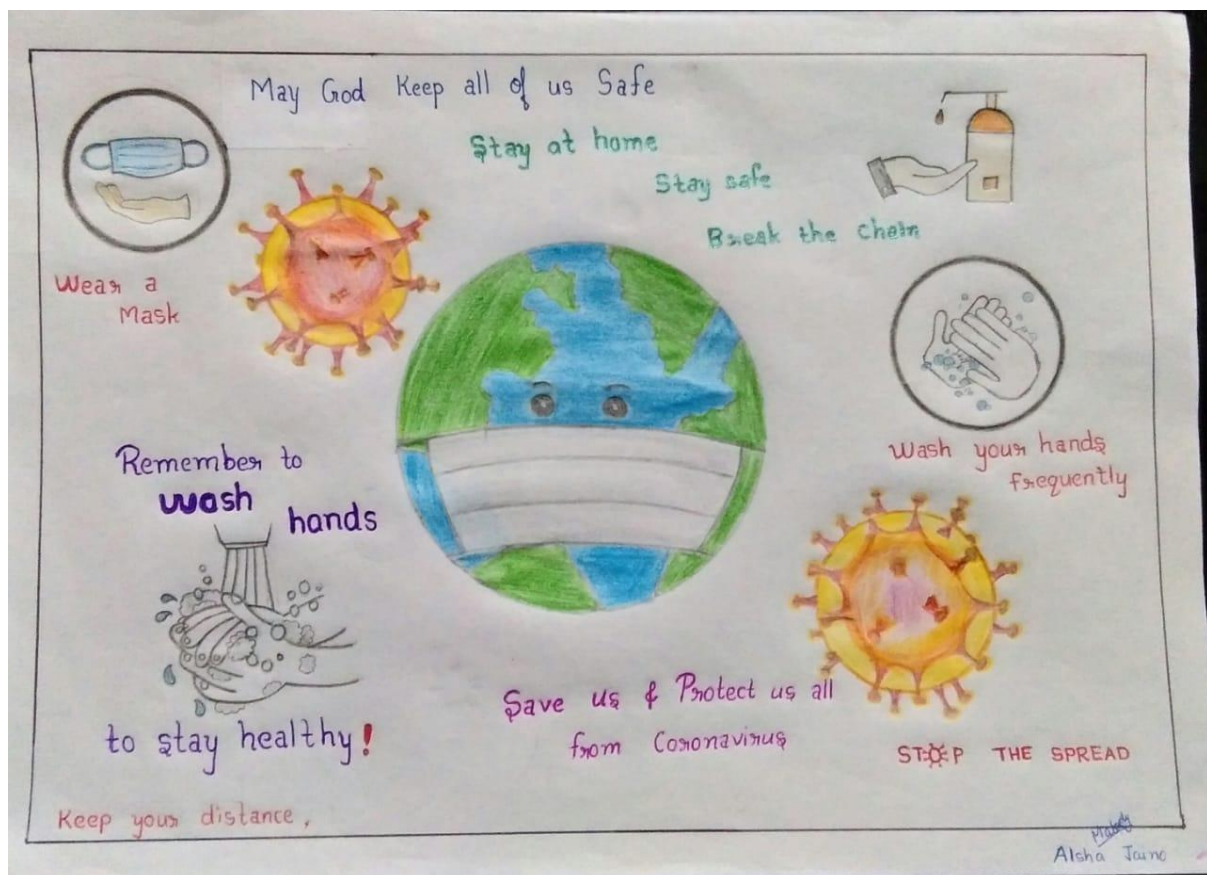 May God Keep all of us Safe
Stay at home
Stay safe
Break the Chein
Wear a
Mask
Wash your hands
frequently
Remember to
wash
hands
to stay healthy!
Save us & Protect us all
from Coronavirus
STOP THE SPREAD
Keep your distance,
Alsha Jaino